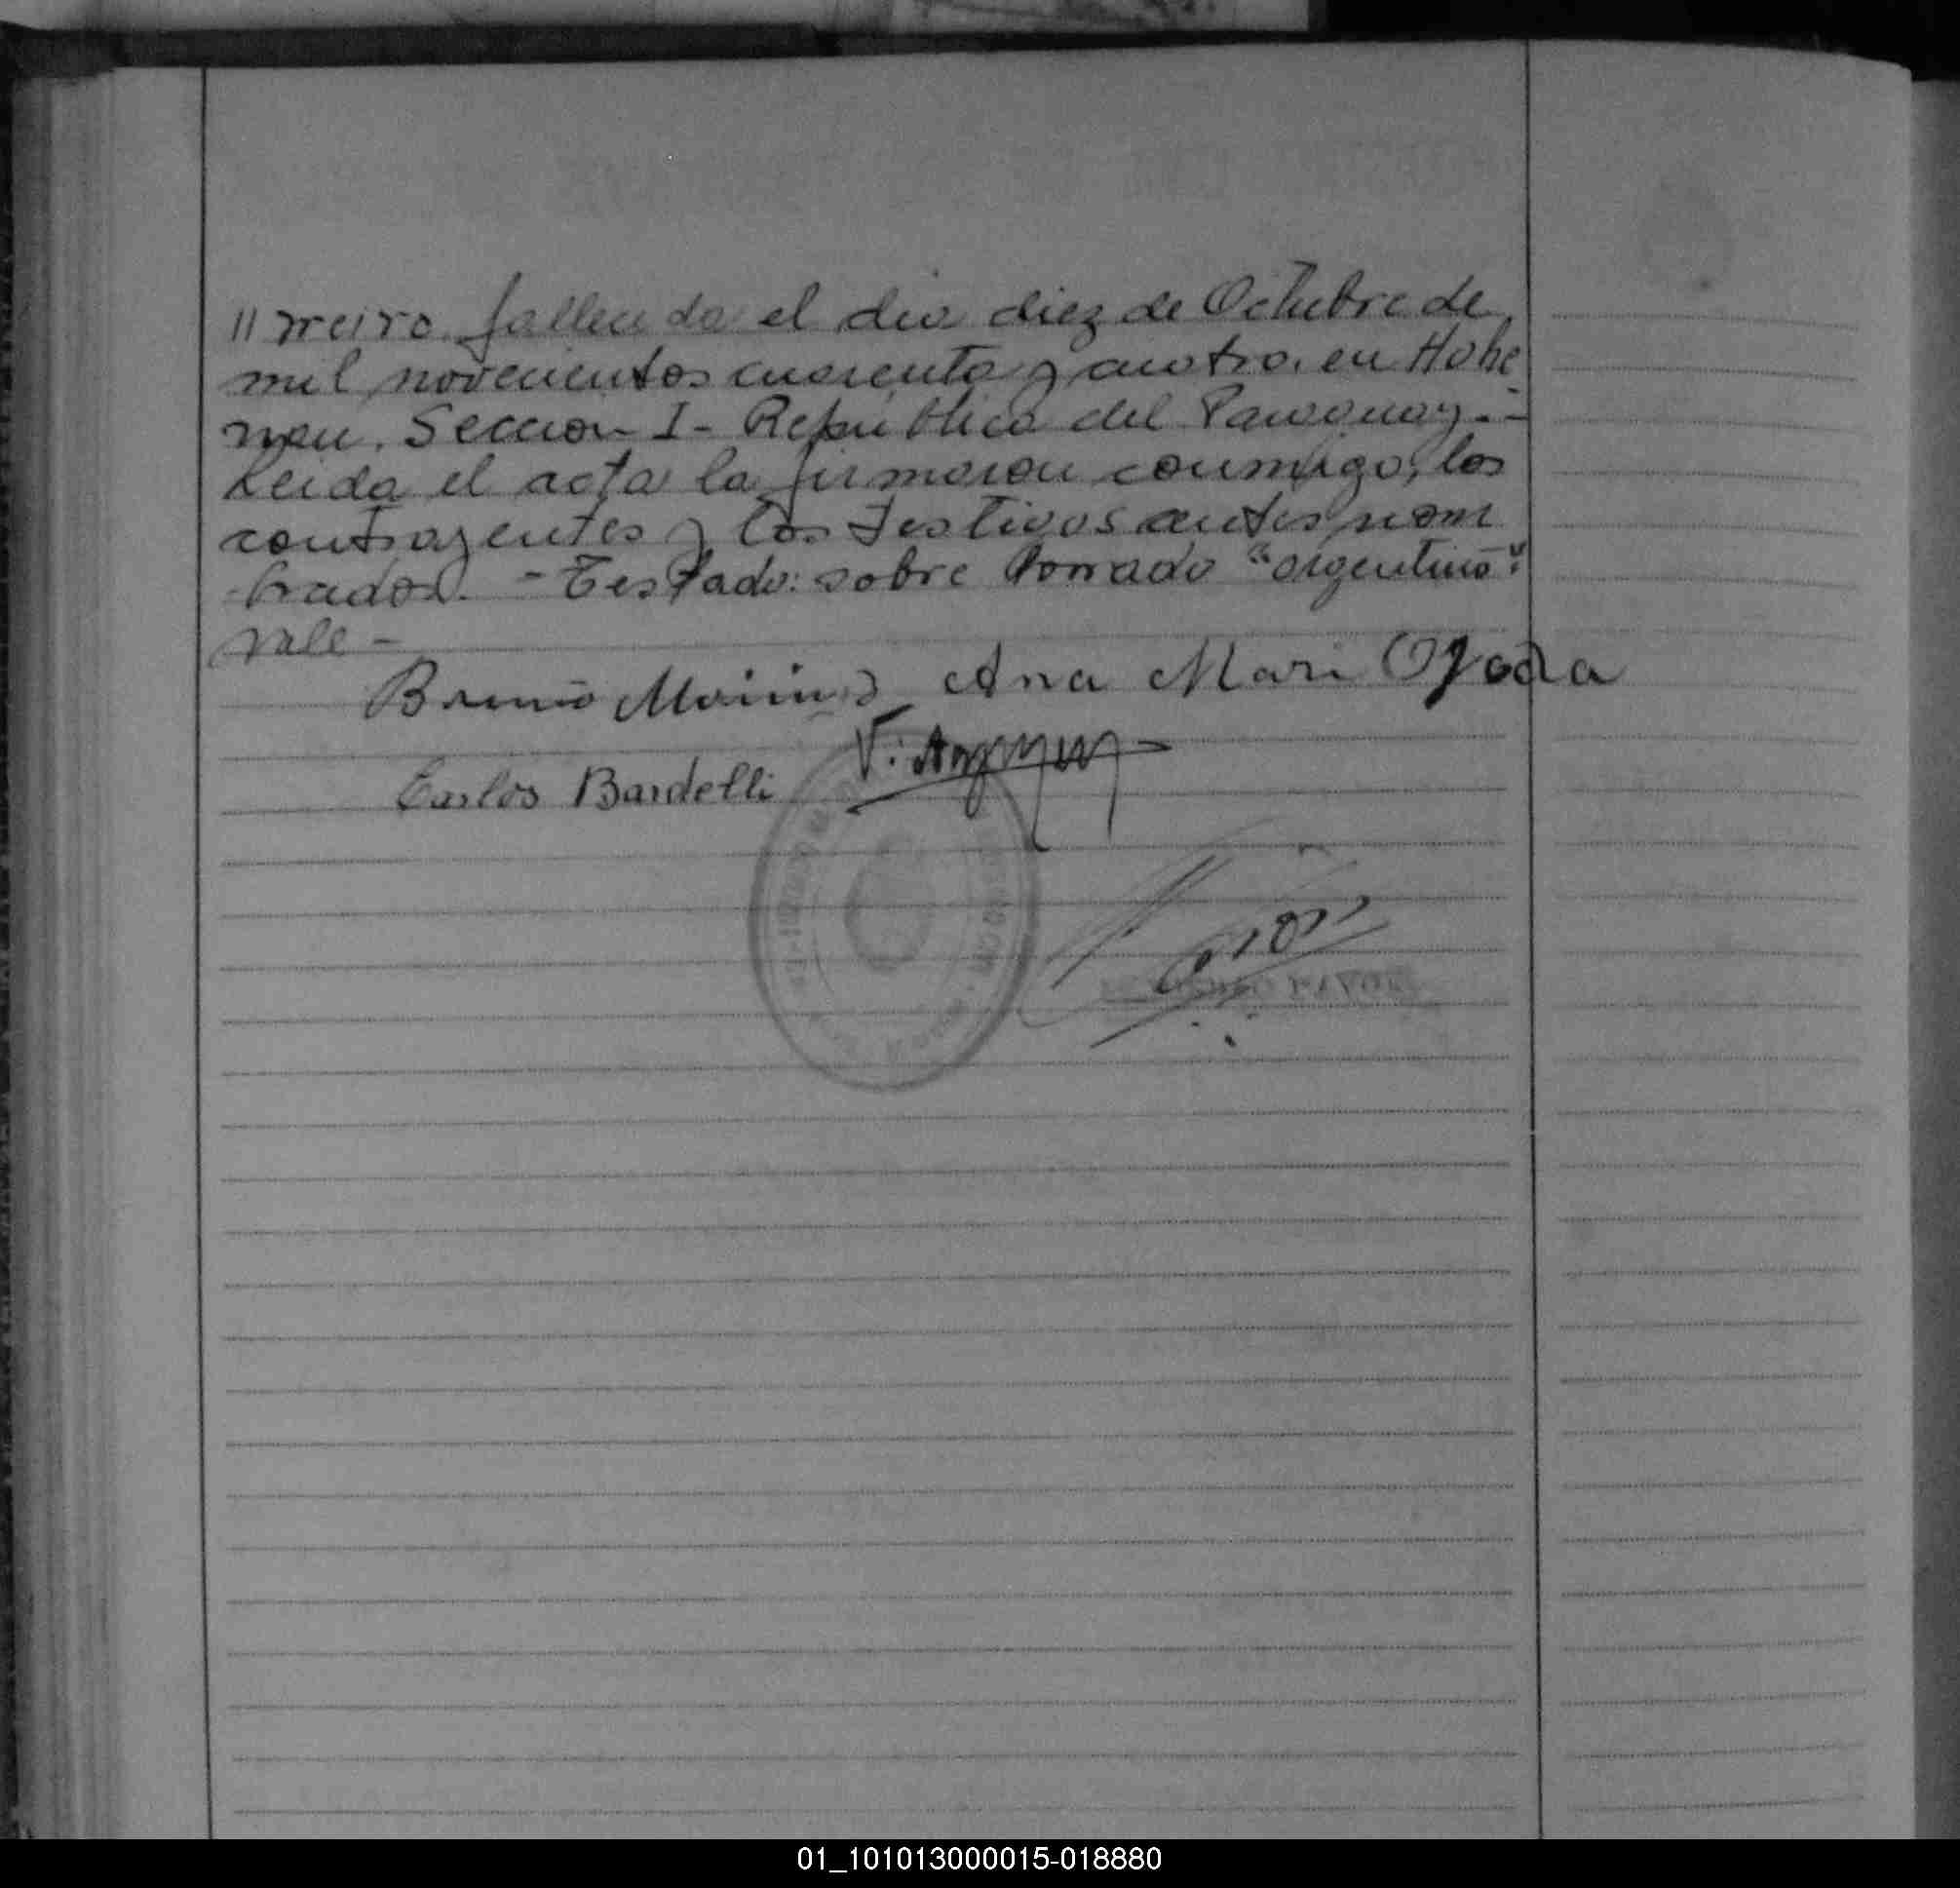 // meiro fallecida el dia diez de Octubre de
mil novecientos cuarenta y cuatro, en Hohe
nau. Seccion I- Republica del Paraguay.-
Leida el acta la firmaron conmigo, los
contrayentes y los testigos antes nom
brados. - Testado: sobre borrado "argentino":
vale -
Bruno Ana Mari Ojeda
Carlos Bardelli V.
01_101013000015-018880